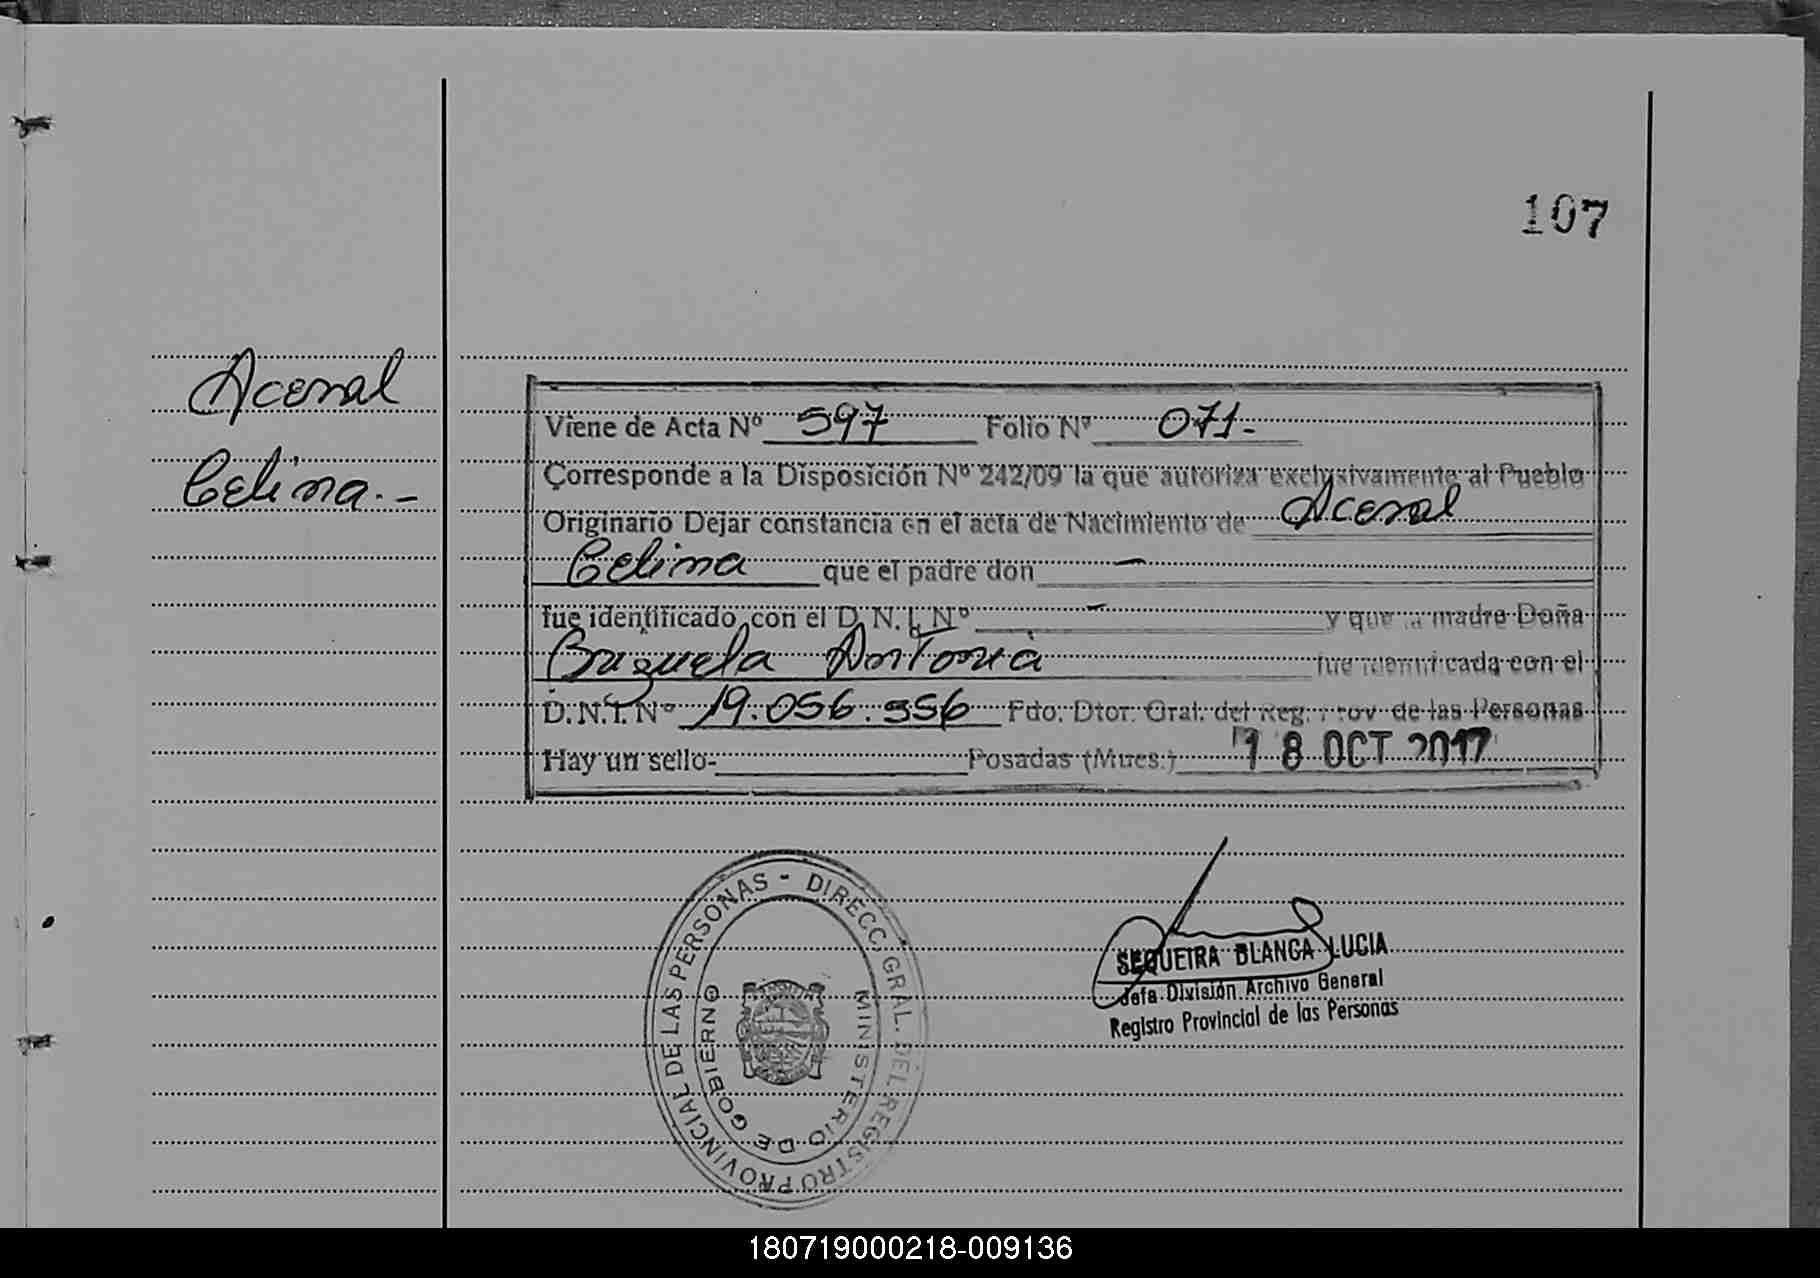 107
Acosal
Celina.-
Viene de Acta Nº 597 Folio Nº 071.-
Corresponde a la Disposición Nº 242/09 la que autoriza exclusivamente al Pueblo
Originario Dejar constancia en el acta de Nacimiento de Acosal
Celina que el padre don -
fue identificado con el D.N.I. Nº - y que la madre Doña
Brizuela Antonia fue identificada con el
D.N.I. Nº 19.056.556 Fdo. Dtor. Gral. del Reg. Prov. de las Personas
Hay un sello- Posadas (Mnes.) 18 OCT 2017
DIRECC. GRAL. DEL REGISTRO PROVINCIAL DE LAS PERSONAS -
MINISTERIO DE GOBIERNO
SEQUEIRA BLANCA LUCIA
Jefa División Archivo General
Registro Provincial de las Personas
180719000218-009136